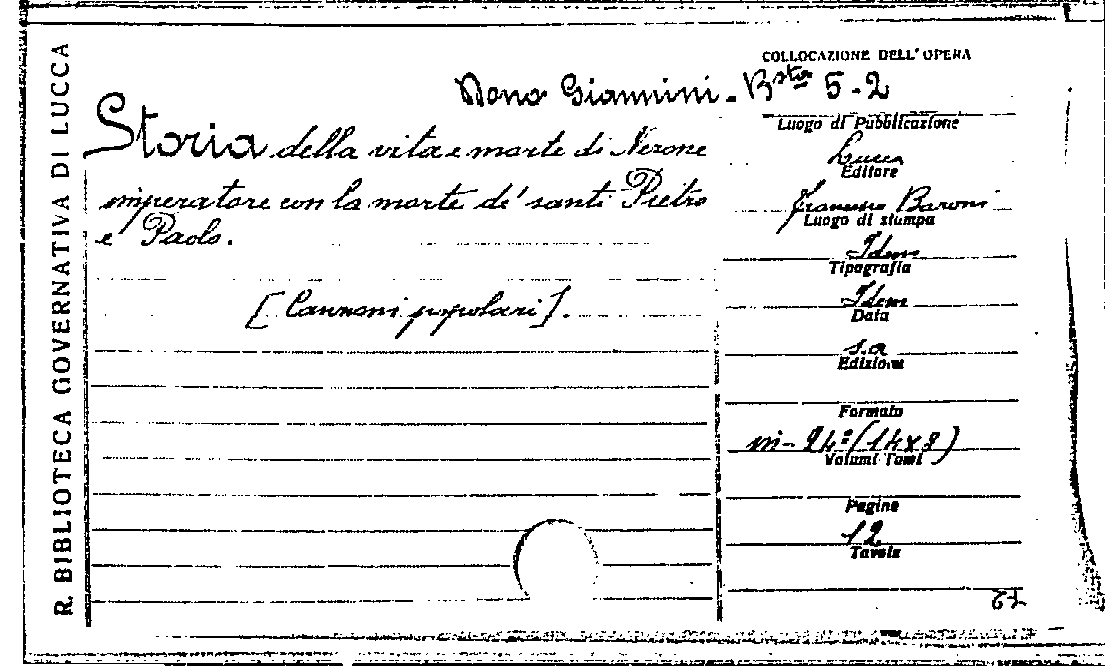 R. BIBLIOTECA GOVERNATIVA DI LUCCA
COLLOCAZIONE DELL'OPERA
Dono Giannini - Bsta 5-2
Storia della vita e morte di Nerone
imperatore con la morte de' santi Pietro
e Paolo.
[Canzoni popolari].
Luogo di Pubblicazione
Lucca
Editore
Francesco Baroni
Luogo di stampa
Idem
Tipografia
Idem
Data
s.a
Edizione
Formato
in-24º (14x8)
Volumi Tomi
Pagine
12
Tavole